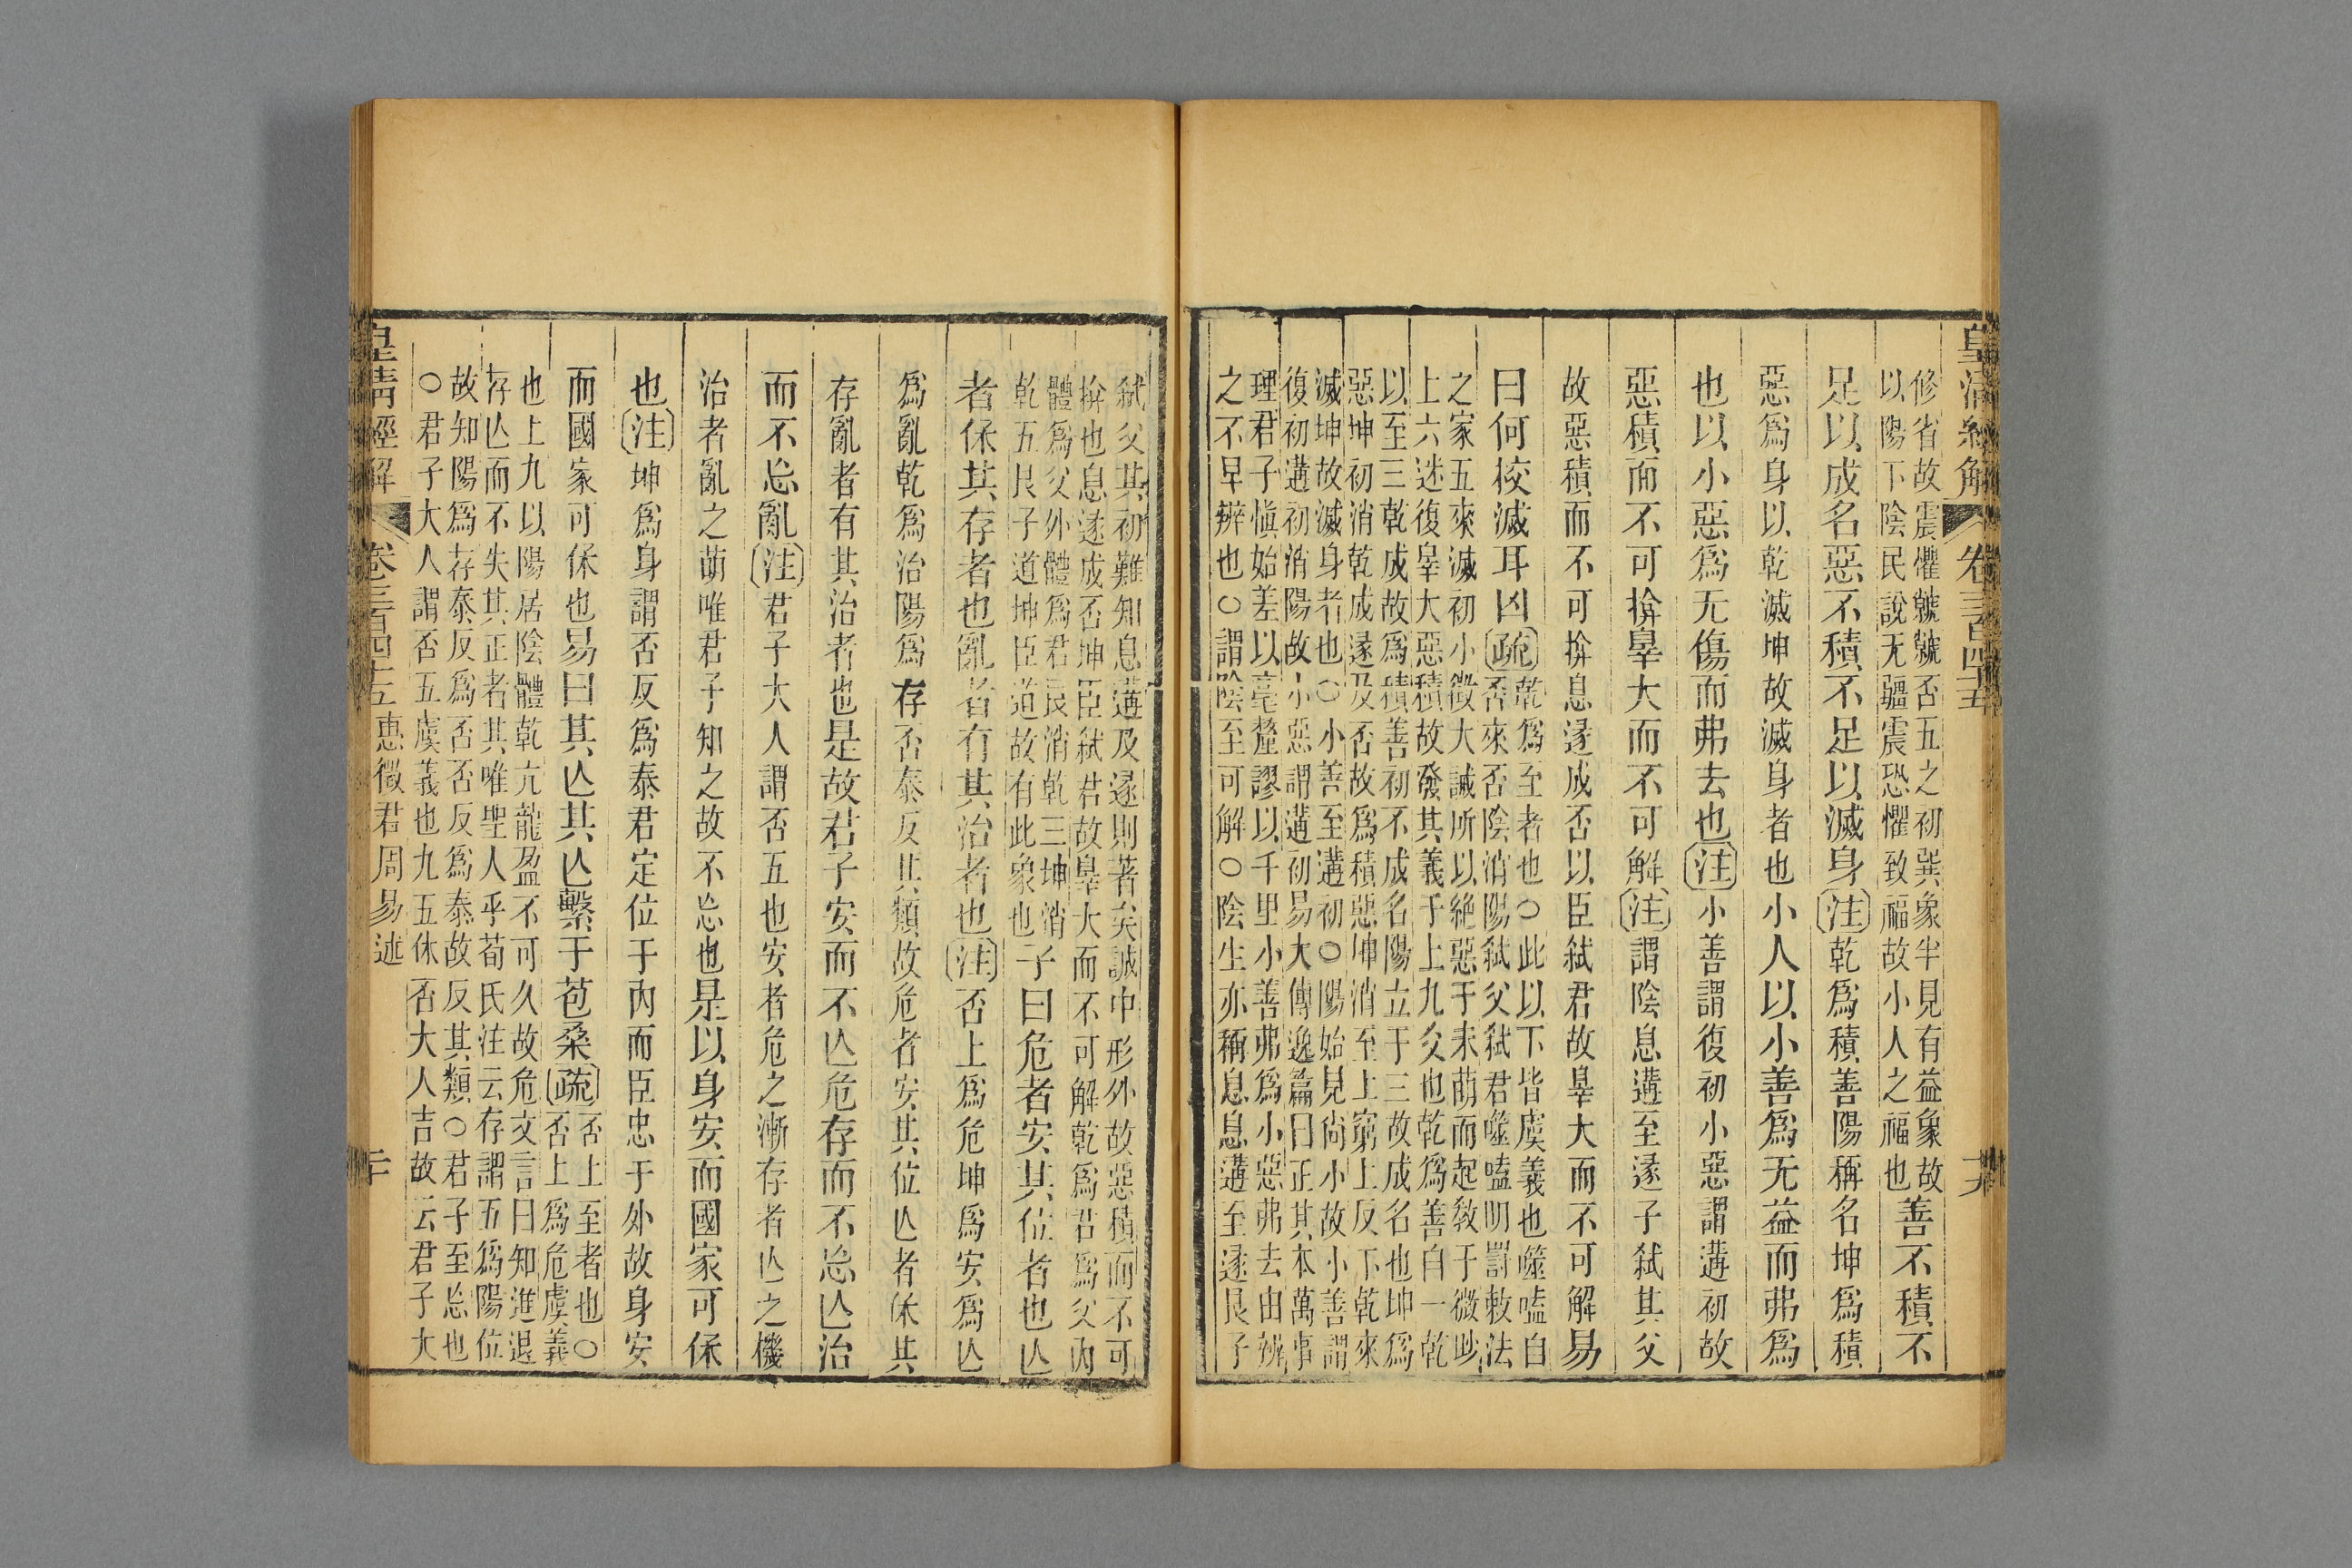 皇清經解 卷三百四十五 十九
修省故震懼虩虩否五之初巽象半見有益象故
以陽下陰民說无疆震恐懼致福故小人之福也
善不積不
足以成名惡不積不足以滅身注乾爲積善陽稱名坤爲積
惡爲身以乾滅坤故滅身者也小人以小善爲无益而弗爲
也以小惡爲无傷而弗去也注小善謂復初小惡謂遘初故
惡積而不可揜辠大而不可解注謂陰息遘至遂子弑其父
故惡積而不可揜息遂成否以臣弑君故辠大而不可解易
曰何校滅耳凶疏
乾爲至者也○此以下皆虞義也噬嗑自
否來否陰消陽弑父弑君噬嗑明罰敕法
之家五來滅初小徵大誡所以絕惡于未萌而起敎于微眇
上六迷復辠大惡積故發其義于上九爻也乾爲善自一乾
以至三乾成故爲積善初不成名陽立于三故成名也坤爲
惡坤初消乾成遂及否故爲積惡坤消至上窮上反下乾來
滅坤故滅身者也○小善至遘初○陽始見尙小故小善謂
復初遘初消陽故小惡謂遘初易大傳逸篇曰正其本萬事
理君子愼始差以毫釐謬以千里小善弗爲小惡弗去由辨
之不早辨也○謂陰至可解○陰生亦稱息息遘至遂艮子
弑父其初難知息遘及遂則著矣誠中形外故惡積而不可
揜也息遂成否坤臣弑君故辠大而不可解乾爲君爲父內
體爲父外體爲君艮消乾三坤消
乾五艮子道坤臣道故有此象也
子曰危者安其位者也亾
者保其存者也亂者有其治者也注否上爲危坤爲安爲亾
爲亂乾爲治陽爲存否泰反其類故危者安其位亾者保其
存亂者有其治者也是故君子安而不亾危存而不忘亾治
而不忘亂注君子大人謂否五也安者危之漸存者亾之機
治者亂之萌唯君子知之故不忘也是以身安而國家可保
也注坤爲身謂否反爲泰君定位于內而臣忠于外故身安
而國家可保也易曰其亾其亾繫于苞桑疏
否上至者也○
否上爲危虞義
也上九以陽居陰體乾亢龍盈不可久故危文言曰知進退
存亾而不失其正者其唯聖人乎荀氏注云存謂五爲陽位
故知陽爲存泰反爲否否反爲泰故反其類○君子至忘也
○君子大人謂否五虞義也九五休否大人吉故云君子大
皇清經解 卷三百四十五 惠徵君周易述 二十